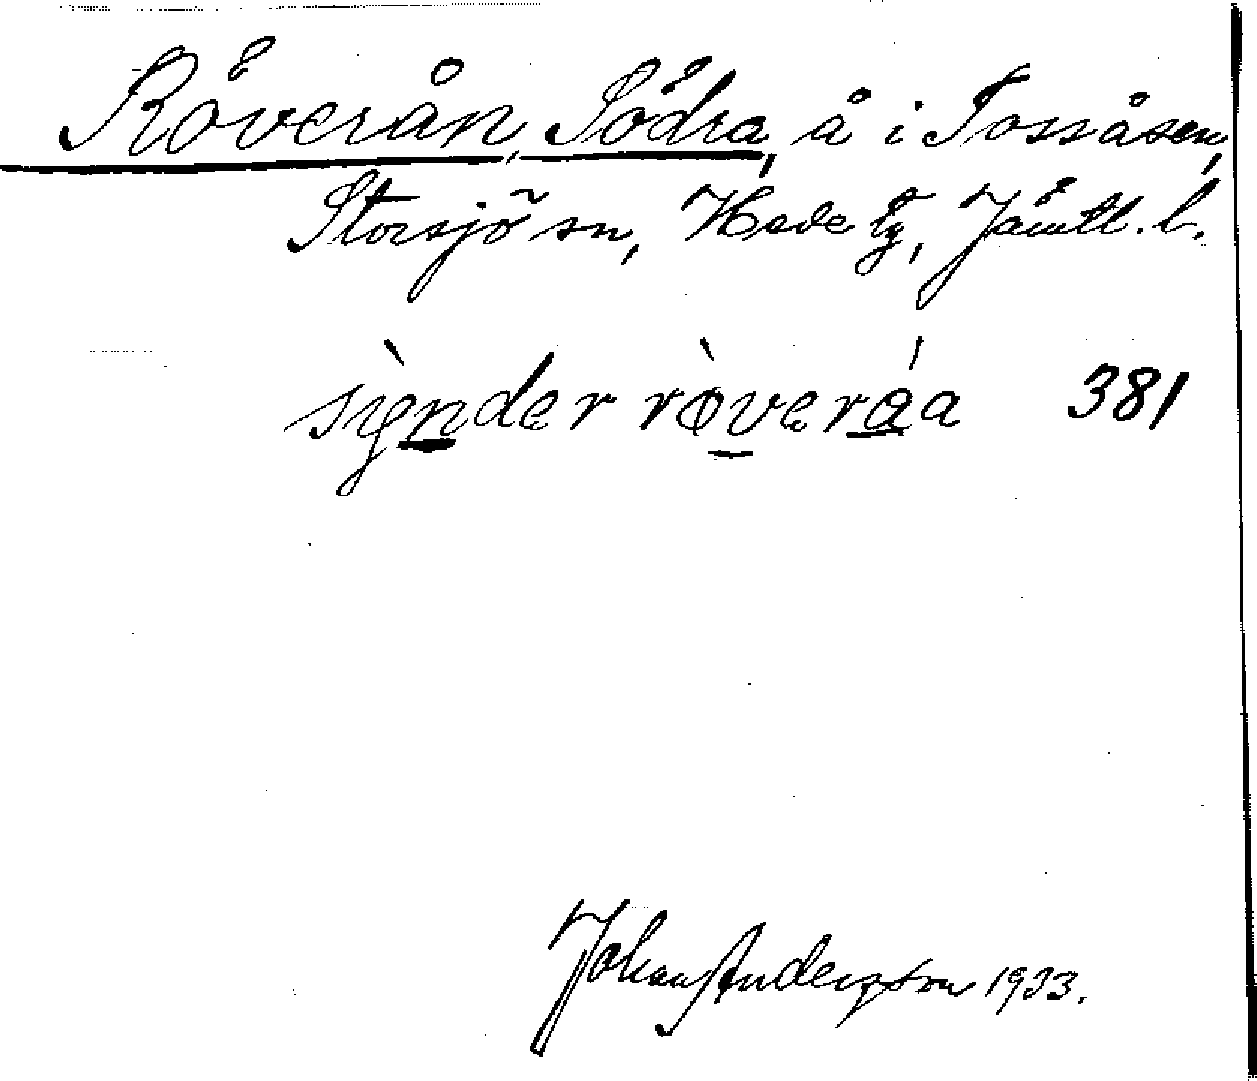 Röverån, Södra, å i Tossåsen,
Storsjö sn, Hede tg, Jämtl. l.
sỳnder rø̀veráa 381
Johan Andersson 1933.